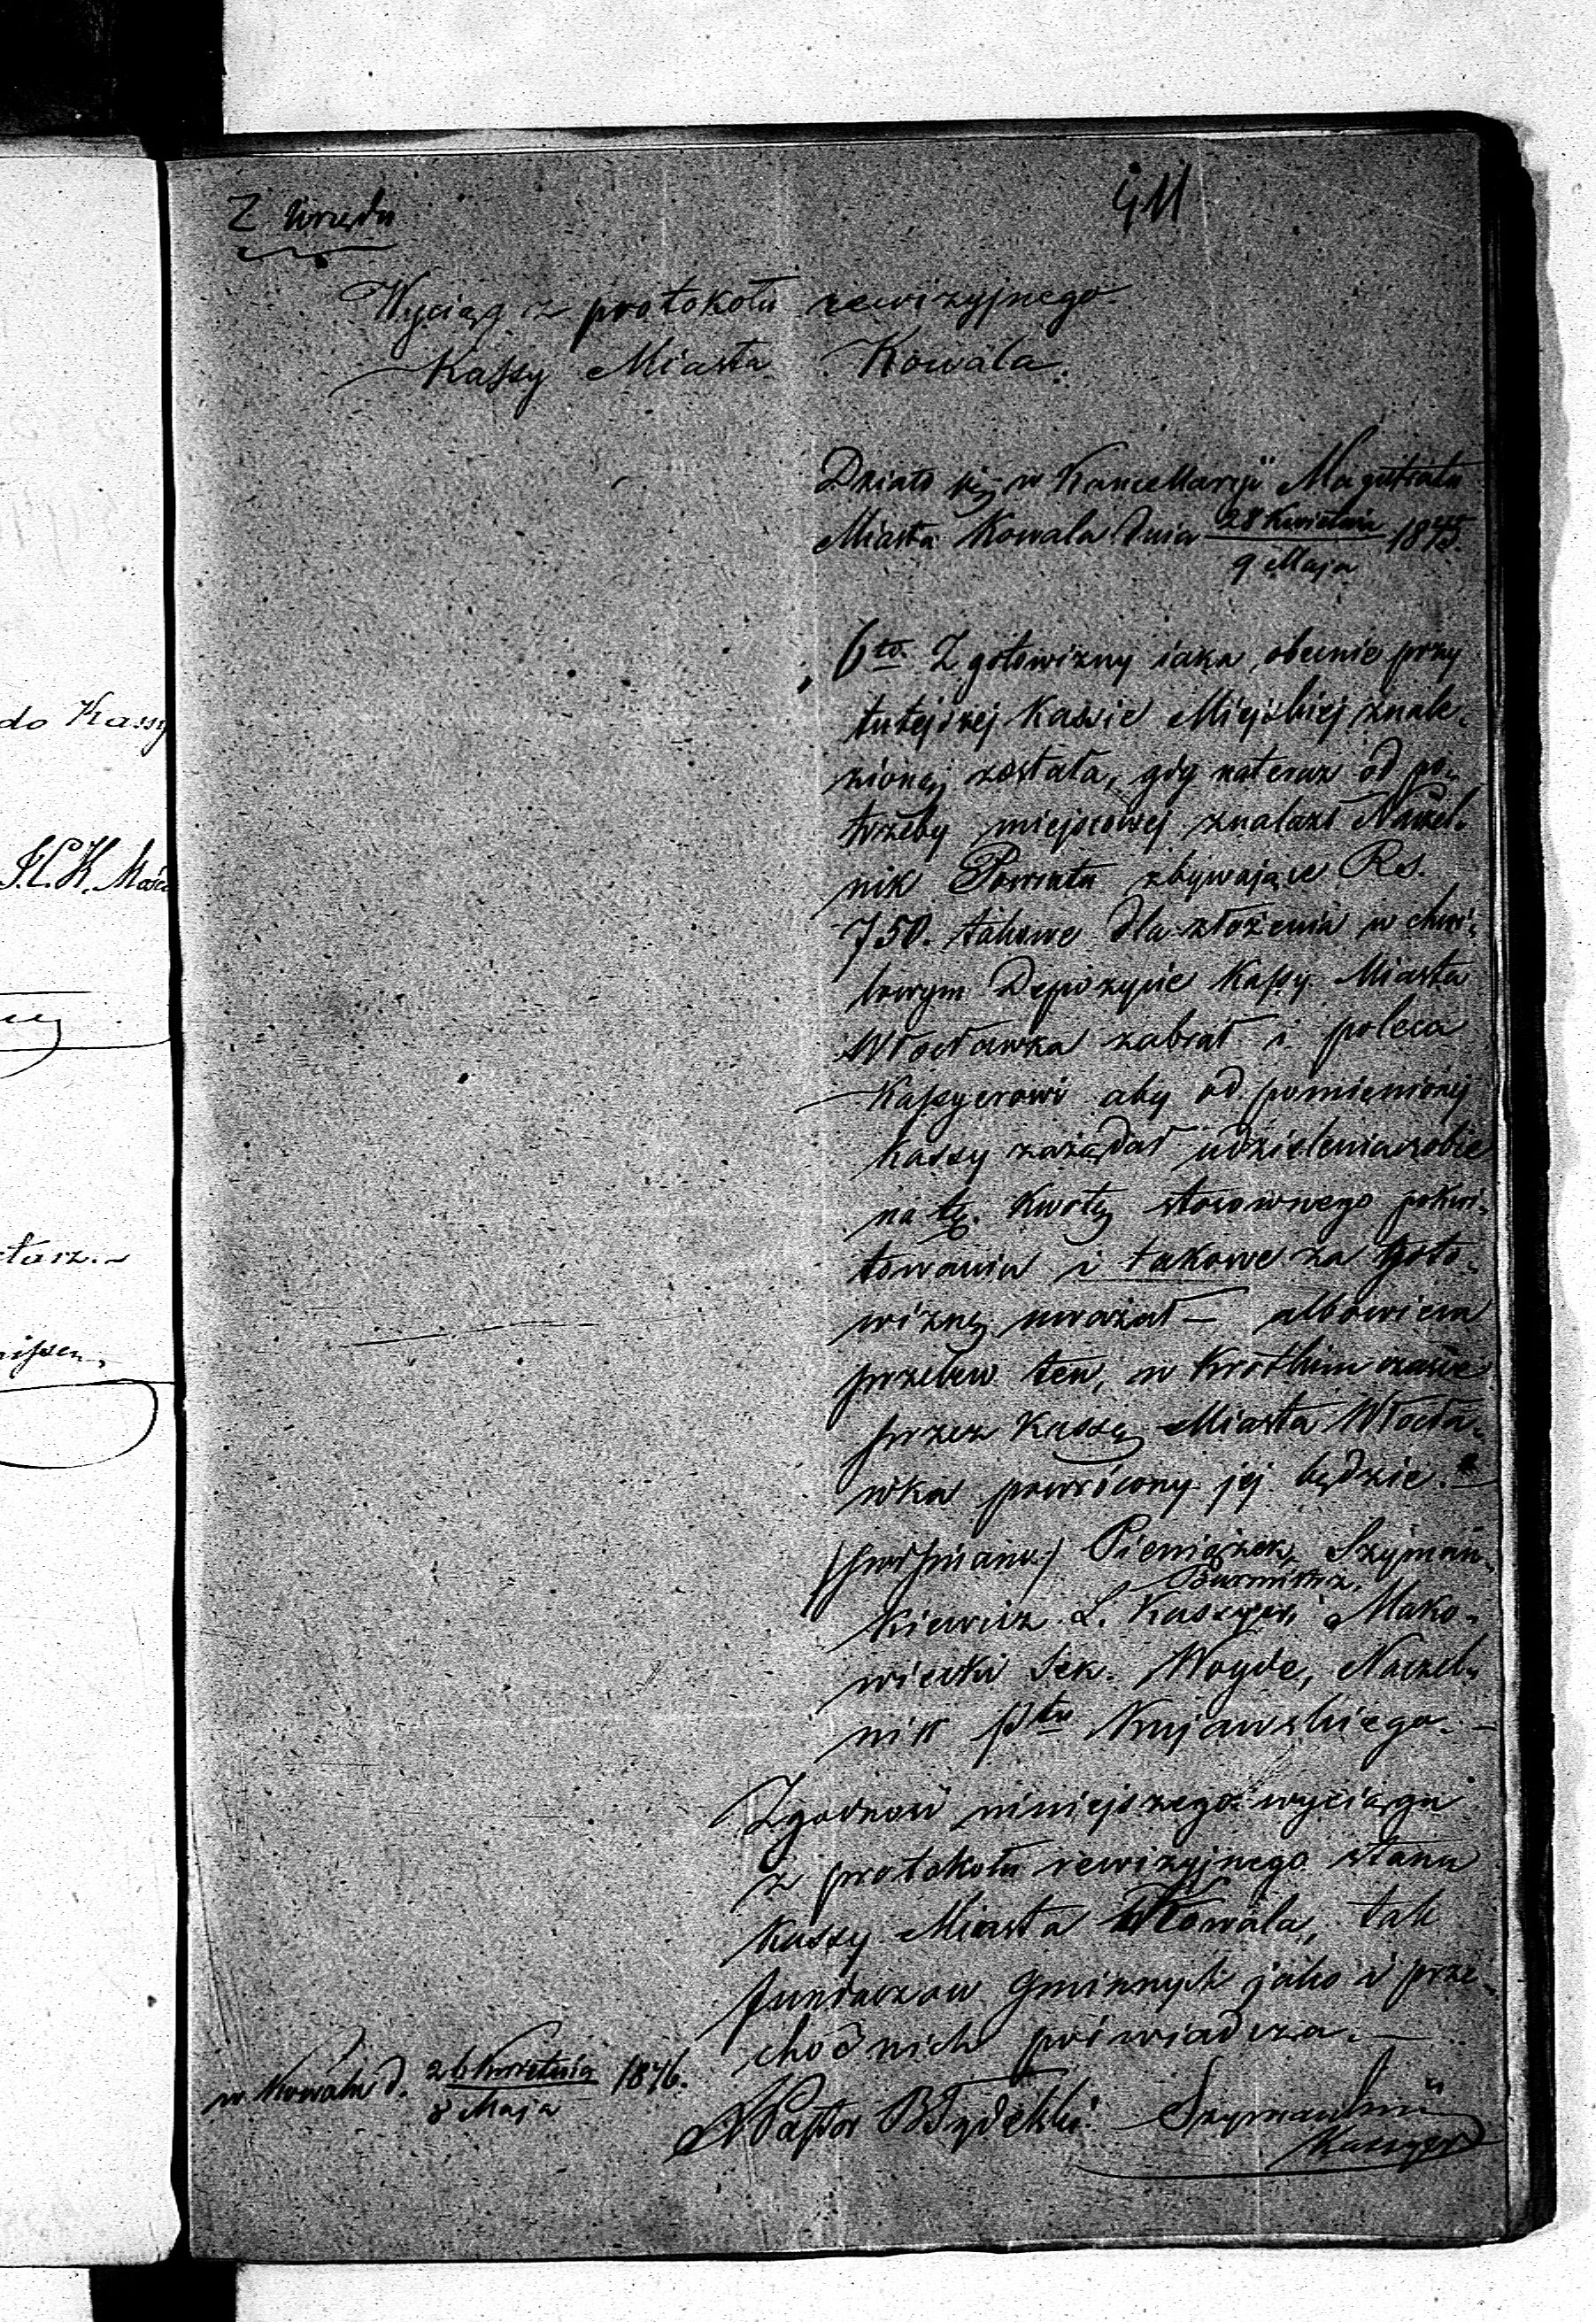 do Kassy
Z urzędu
411
Wyciąg z protokołu rewizyjnego
Kassy Miasta Kowala.
Działo się w Kancellaryi Magistratu
Miasta Kowala dnia 28 Kwietnia
9 Maja 1845.
6to. Z gotowizny iaka obecnie przy
tutejszej Kassie Miejskiej znale-
zioną została, gdy nateraz od po-
trzeby miejscowej znalazł Naczel-
nik Powiatu zbywające Rs.
750. takowe dla złożenia w chwi-
lowym Depozycie Kassy Miasta
Włocławka zabrał i poleca
Kassyerowi aby od pomienionej
Kassy zażądał udzielenia sobie
na tę Kwotę stosownego pokwi-
towania i takowe za goto-
wiznę uważał – albowiem
przelew ten, w krótkim czasie
przez Kassę Miasta Włocła-
wka powrócony jej będzie. –
(podpisano) Pieniążek, Szyman-
Burmistrz,
kiewicz Mako-
wiecki Sek. Woyde, Naczel-
nik Ptu Kujawskiego. –
Zgodność niniejszego wyciągu
z protokołu rewizyjnego stanu
Kassy Miasta Kowala, tak
funduszow Gminnych jako i prze-
chodnich poświadcza. –
w Kowalu d. 26 Kwietnia
8 Maja 1846.
Kassyer